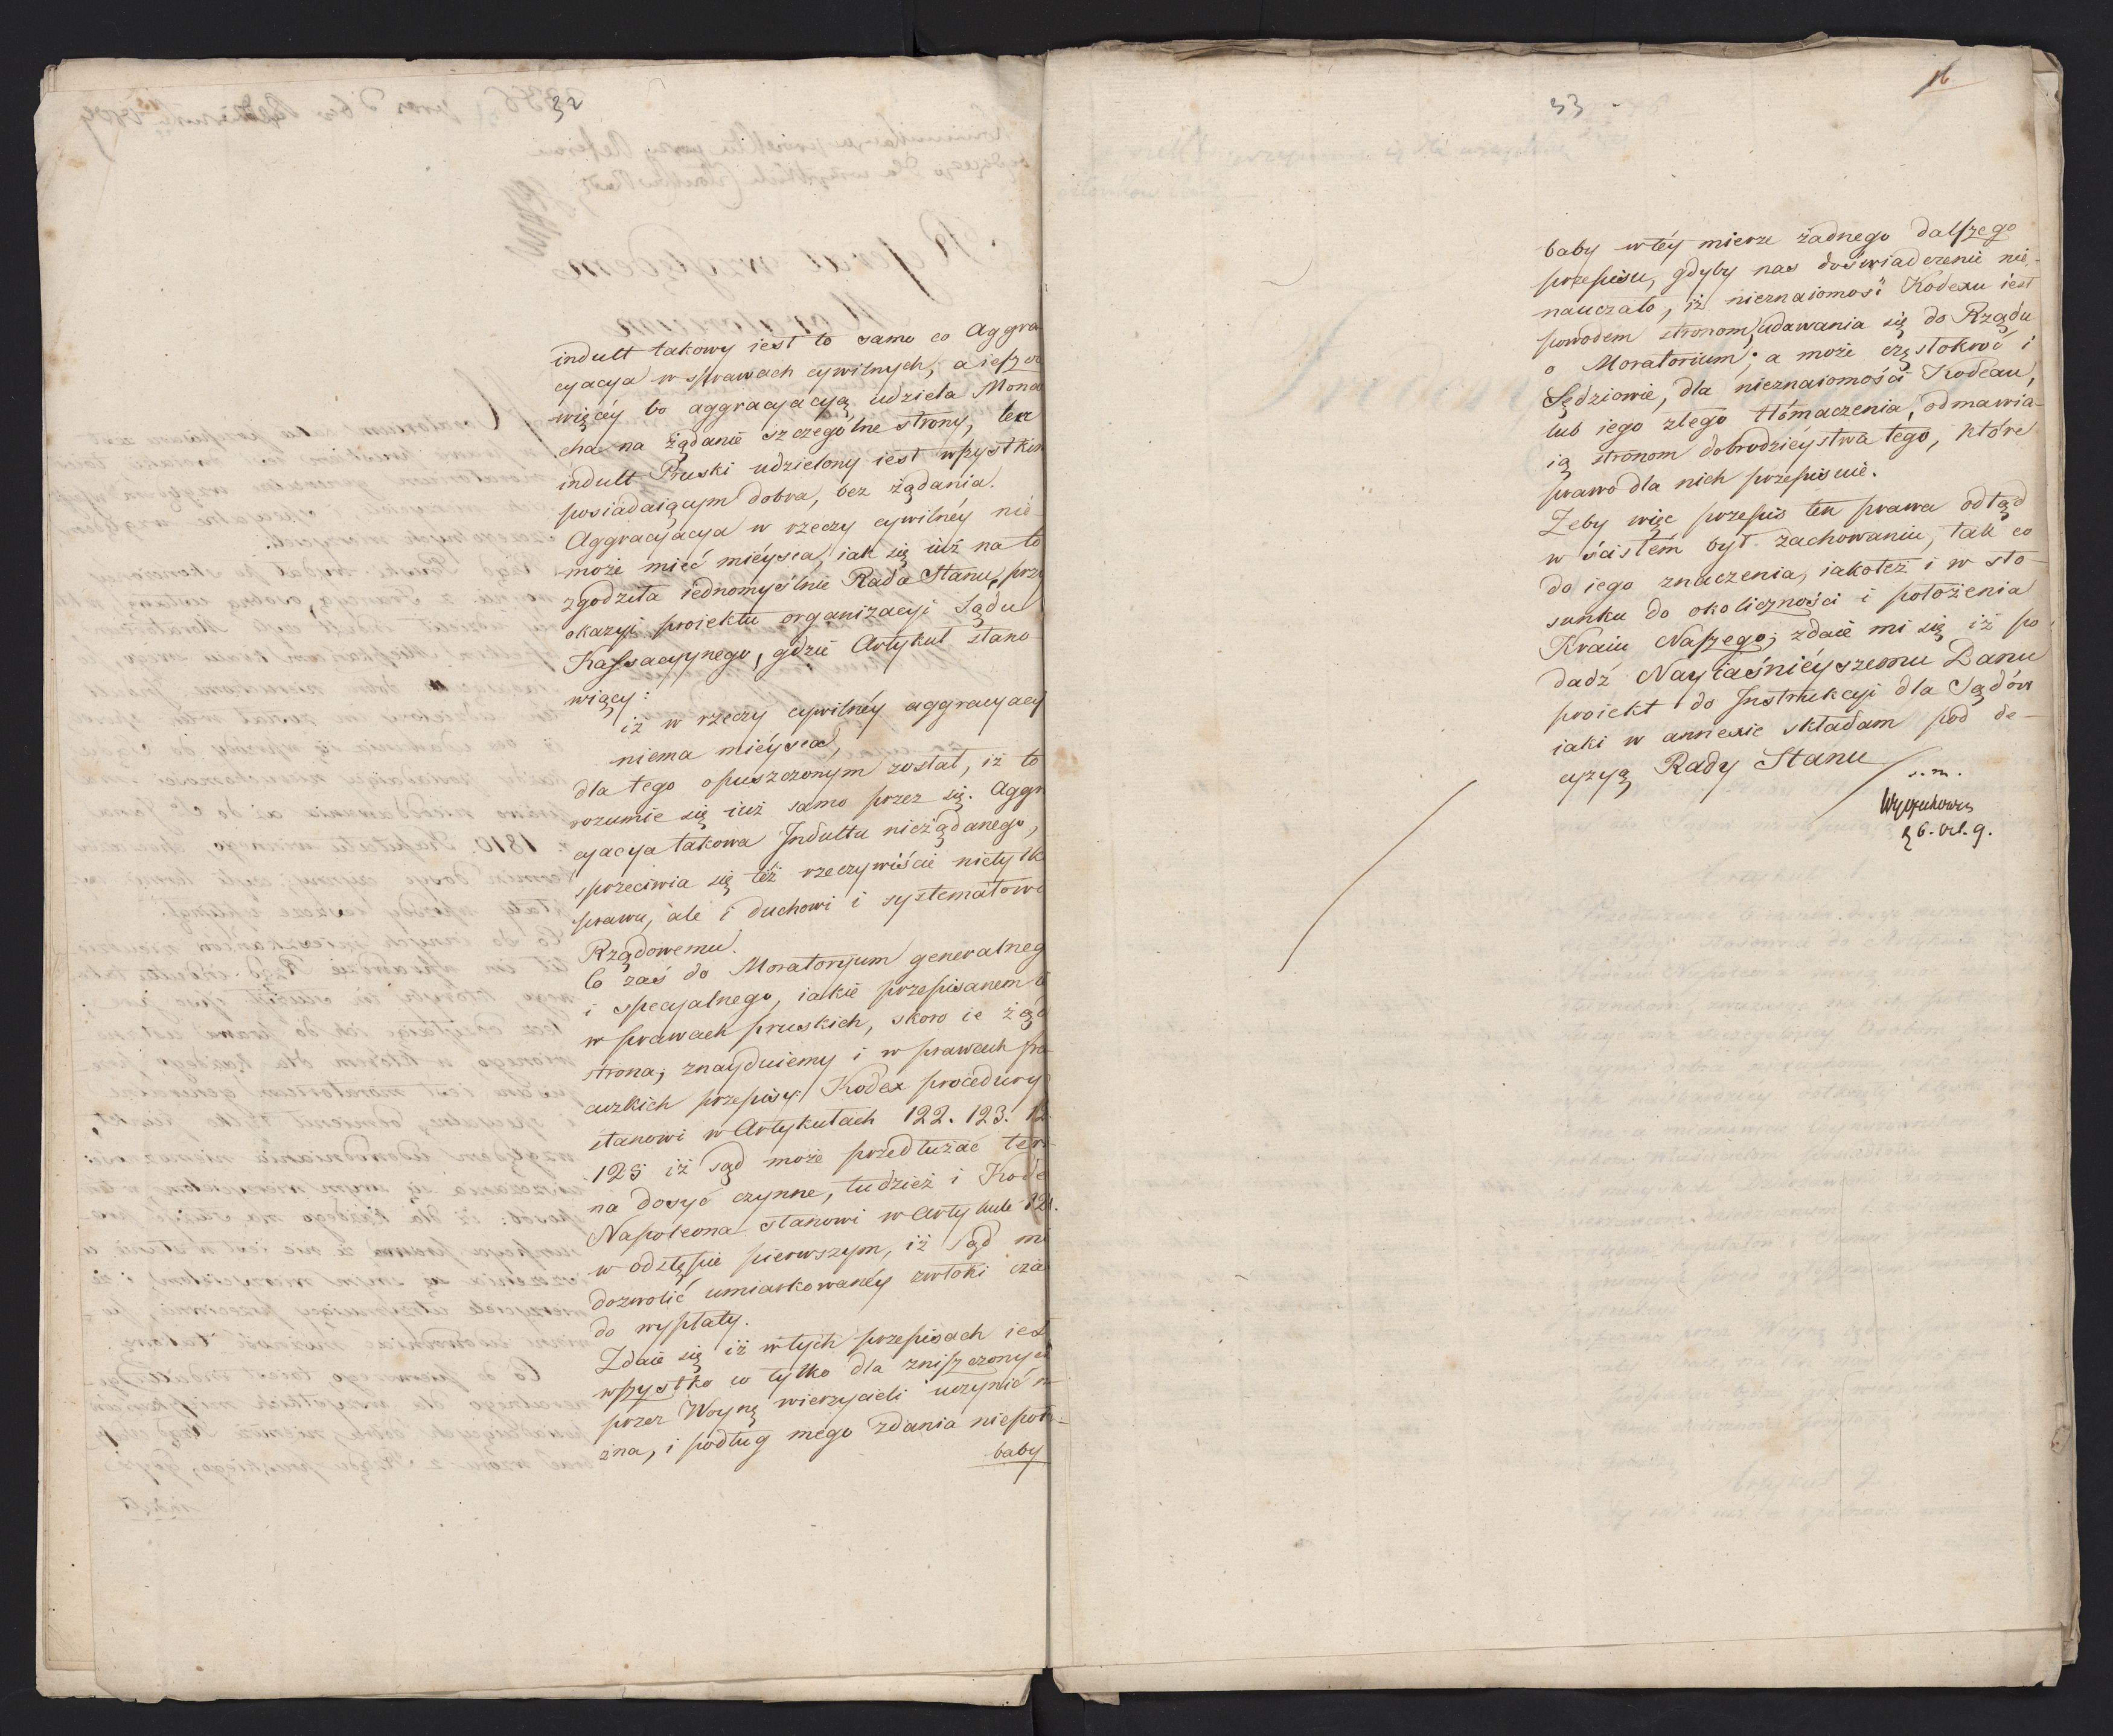 32
indult takowy iest to samo co Aggra
cyacya w sprawach cywilnych, a ieszcze
więcéy bo aggracyacyą udziela Mona
cha na żądanie szczególne strony, ten
indult Pruski udzielony iest wszystkim
posiadaiącym dobra, bez żądania.
Aggracyacya w rzeczy cywilnéy nie
może mieć mieysca, iak się iuż na to
zgodziła iednomyślnie Rada Stanu, przy
okazyi proiektu organizacyi Sądu
Kassacyynego, gdzie Artykuł stano
wiący:
iż w rzeczy cywilnéy aggracyacy
niema mieysca,
dla tego opuszczonym został, iż to
rozumie się iuż samo przez się. Aggr
cyacya takowa Indultu nieżądanego,
sprzeciwia się też rzeczywiście nietylk
prawu, ale i duchowi i systematowi
Rządowemu.
Co zaś do Moratoryum generalneg
i specyalnego, iakie przepisanem
w prawach pruskich, skoro ie żąd
strona, znayduiemy i w prawach fran
cuzkich przepisy: Kodex procedury
stanowi w Artykułach 122. 123. 12
125 iż sąd może przedłużać ter
na dosyć czynne, tudzież i Kode
Napoleona stanowi w Artykule 12
w odstępie pierwszym, iż Sąd mo
dozwolić umiarkowanéy zwłoki cza
do wypłaty.
Zdaie się iż w tych przepisach iest
wszystko co tylko dla zniszczonych
przez Woynę wierzycieli uczynić m
żna, i podług mego zdania niepotrze
baby
33
16
baby w téy mierze żadnego dalszego
przepisu, gdyby nas doświadczenie nie
nauczało, iż nieznaiomość Kodexu iest
powodem stronom, udawania się do Rządu
o Moratorium; a może częstokroć i
Sędziowie, dla nieznaiomości Kodexu,
lub iego złego tłómaczenia, odmawia
ią stronom dobrodzieystwa tego, które
prawo dla nich przepisuie.
Żeby więc przepis ten prawa odtąd
w ścisłém był zachowaniu, tak co
do iego znaczenia, iakoteż i w sto
sunku do okoliczności i położenia
Kraiu Naszego; zdaie mi się iż po
dadź Nayiaśniéyszemu Panu
proiekt do Instrukcyi dla Sądów
iaki w annexie składam pod de-
cyzyą Rady Stanu